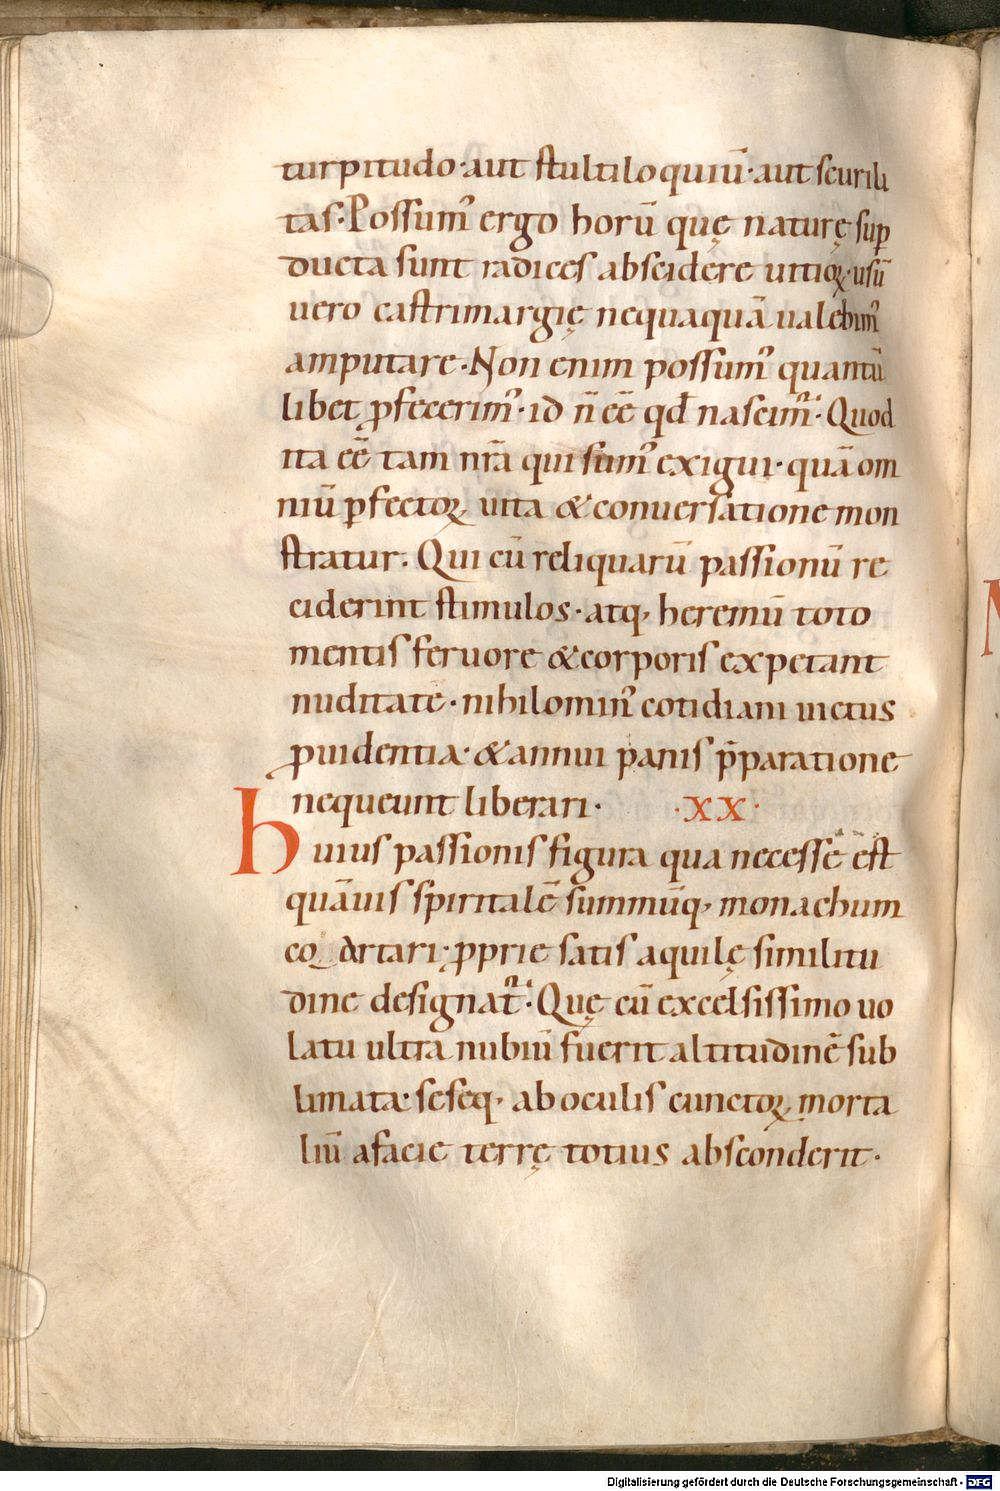 turpitudo· aut stultiloquiū· aut scurili
tas· Possum᾽ ergo horū quę naturę sup̄
ducta sunt radices abscidere uitioꝝ· usū
uero castrimargię nequaquā ualebim᾽
amputare· Non enim possum᾽ quantū
libet ꝓfecerim᾽· id n̄ eē qd̄ nascim᷑· Quod
ita eē tam nr̄a qui sum᾽ exigui· quā om
niū ꝑfectoꝝ uita & conuersatione mon
stratur· Qui cū reliquarū passionū re
ciderint stimulos· atq, heremū toto
mentis feruore & corporis expetant
nuditatē· nihilomin᾽ cotidiani uictus
ꝓuidentia· & annui panis p̄paratione
nequeunt liberari· ·XX·
Huius passionis figura qua necesse est
quāuis spiritalē summūq, monachum
co artari· ꝓprie satis aquilę similitu
dine designat᷑· Quę cū excelsissimo uo
latu ultra nubiū fuerit altitudinē sub
limata· seseq, ab oculis cunctoꝝ morta
liū a facie terrę totius absconderit·
Digitalisierung gefördert durch die Deutsche Forschungsgemeinschaft - DFG